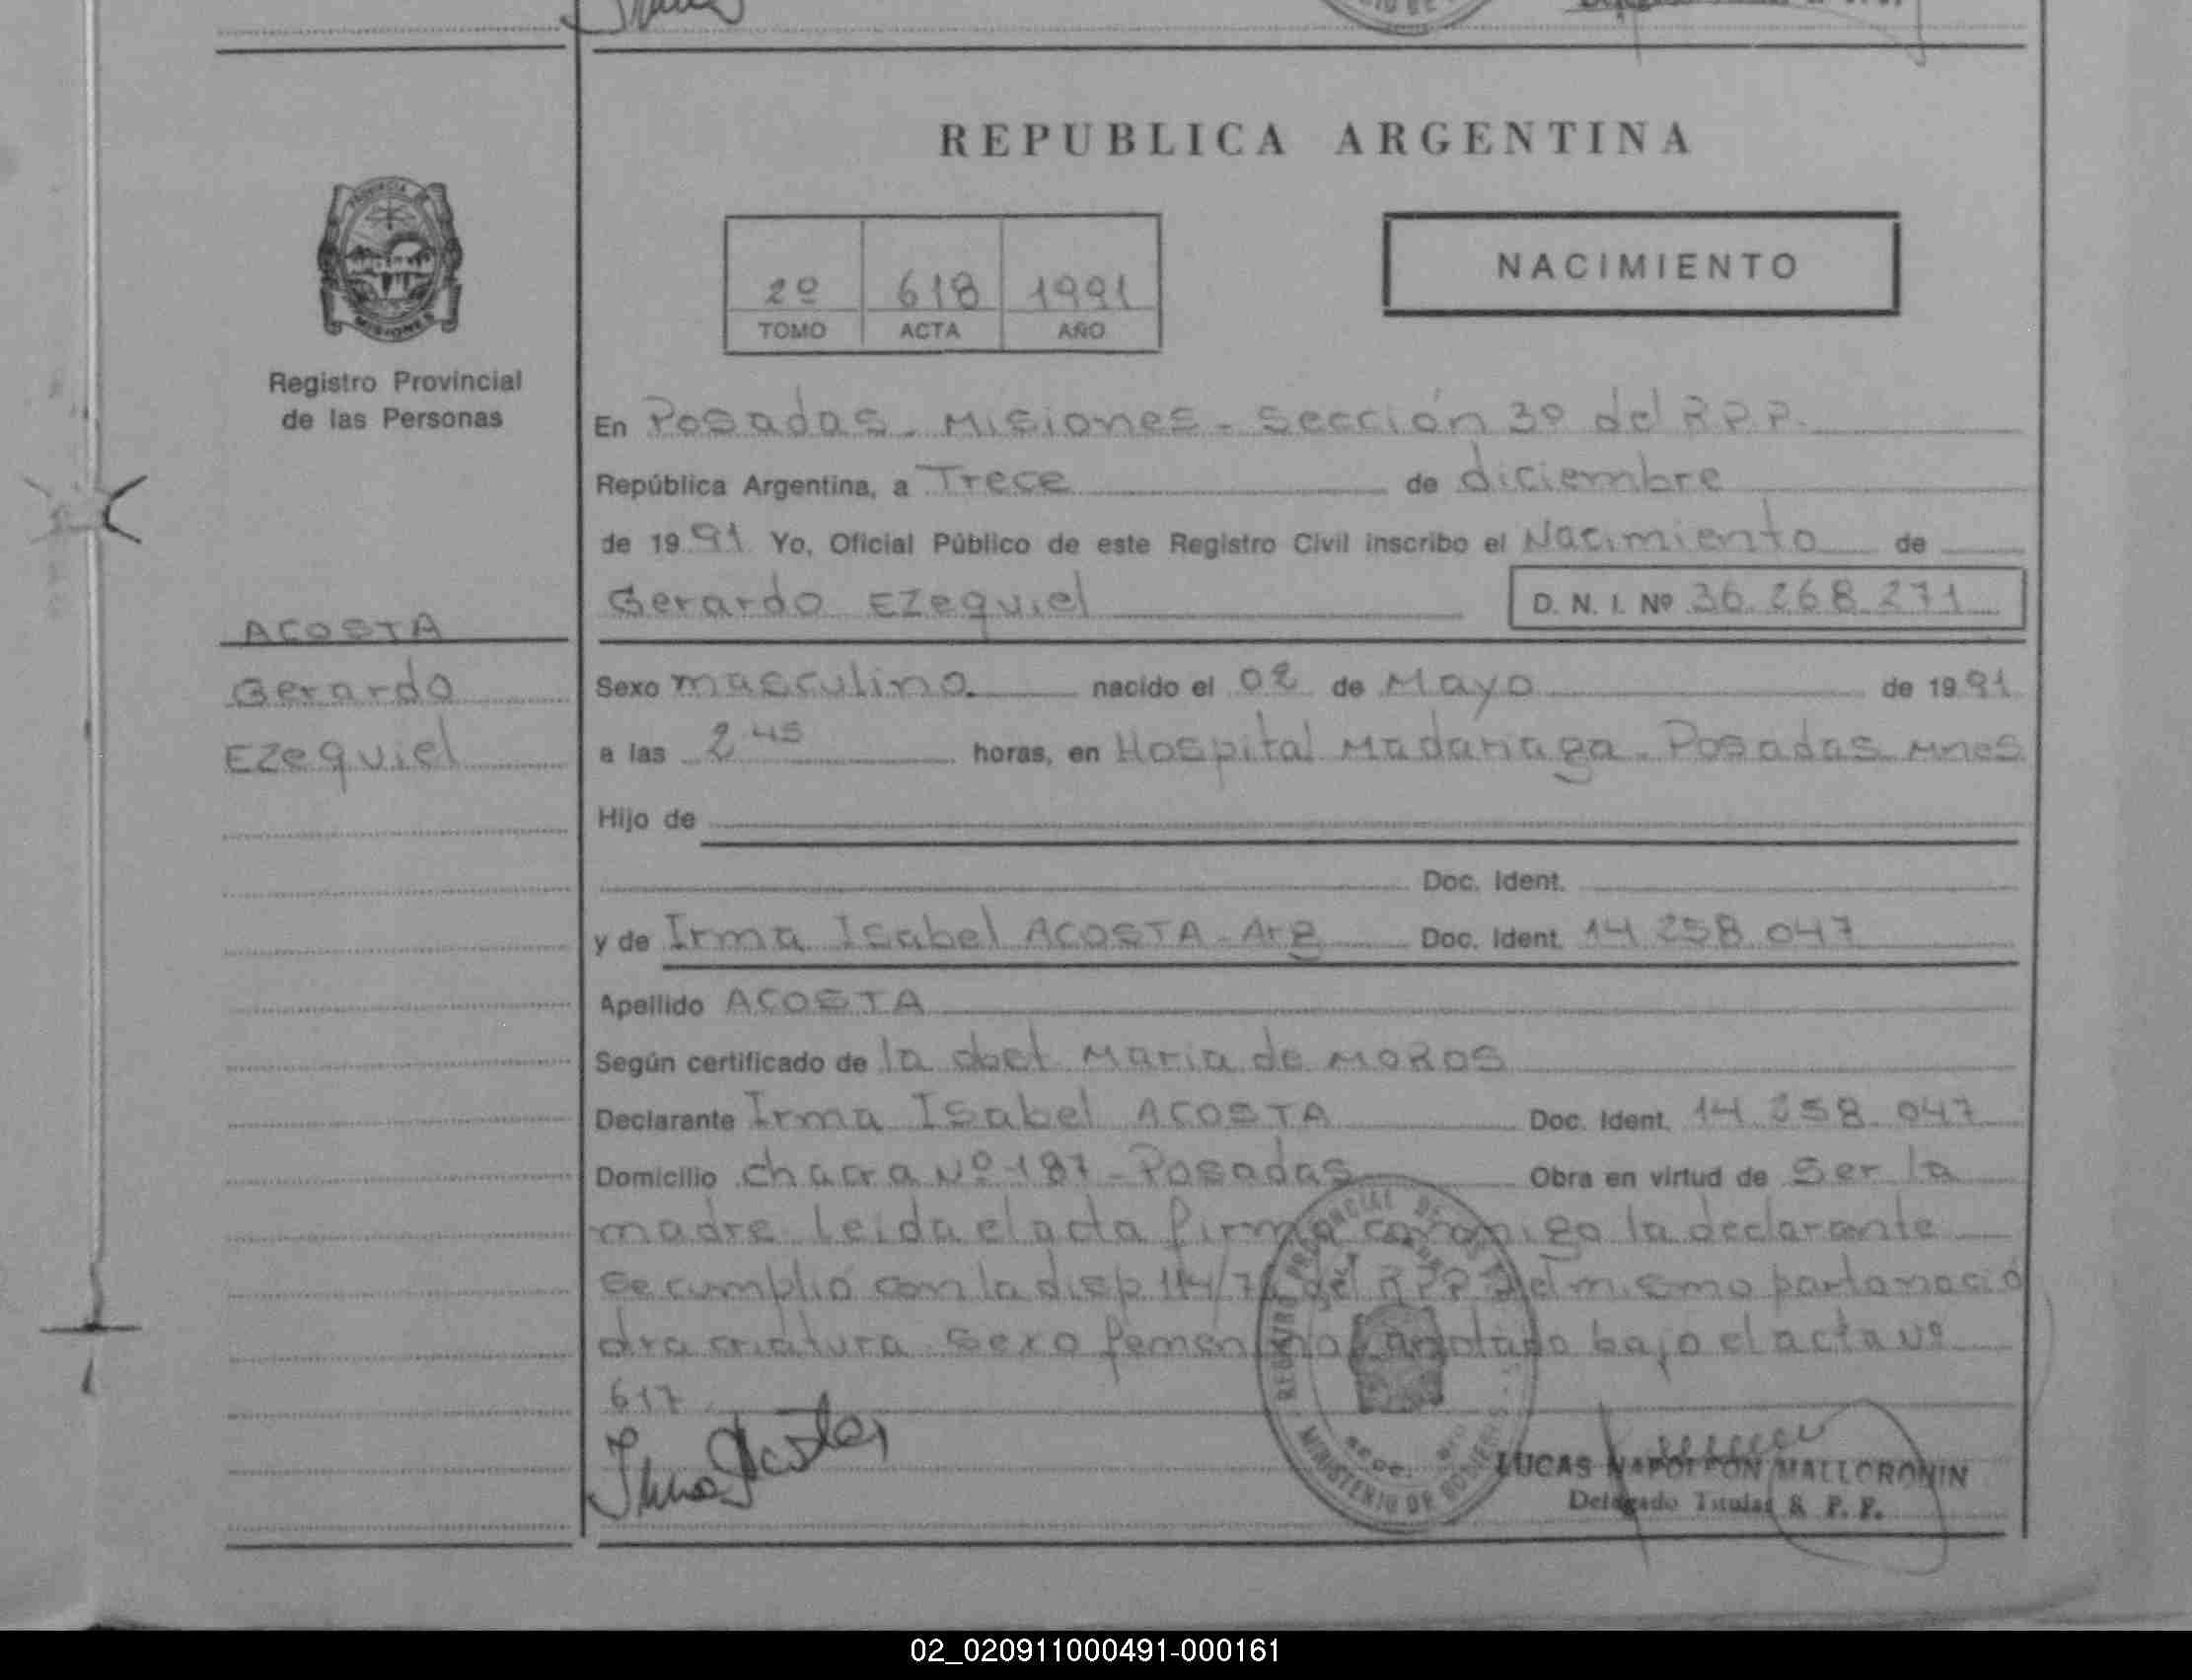 REPUBLICA ARGENTINA
PROVINCIA DE
MISIONES
Registro Provincial
de las Personas
2º 618 1991
TOMO ACTA AÑO
NACIMIENTO
En Posadas - Misiones - Sección 3º del R.P.P.
República Argentina, a Trece de diciembre
de 1991 Yo, Oficial Público de este Registro Civil inscribo el Nacimiento de
Gerardo Ezequiel D. N. I. Nº 36.268.271
ACOSTA
Gerardo
Ezequiel
Sexo masculino. nacido el 02 de Mayo de 1991
a las 2 45 horas, en Hospital Madariaga - Posadas Mnes
Hijo de
Doc. Ident.
y de Irma Isabel ACOSTA - Arg Doc. Ident. 14.258.047
Apellido ACOSTA
Según certificado de la obst Maria de MOROS
Declarante Irma Isabel ACOSTA Doc. Ident. 14.258.047
Domicilio chacra Nº 187 - Posadas Obra en virtud de Ser la
madre Leida el acta firma conmigo la declarante
Se cumplió con la disp 114/7 del R.P.P. del mismo parto nació
otra criatura sexo femenino anotado bajo el acta Nº
617
Irma Acosta
REGISTRO PROVINCIAL DE LAS
MINISTERIO DE GOBIERNO
LUCAS NAPOLEON MALLORQUIN
Delegado Titular R. P. P.
02_020911000491-000161